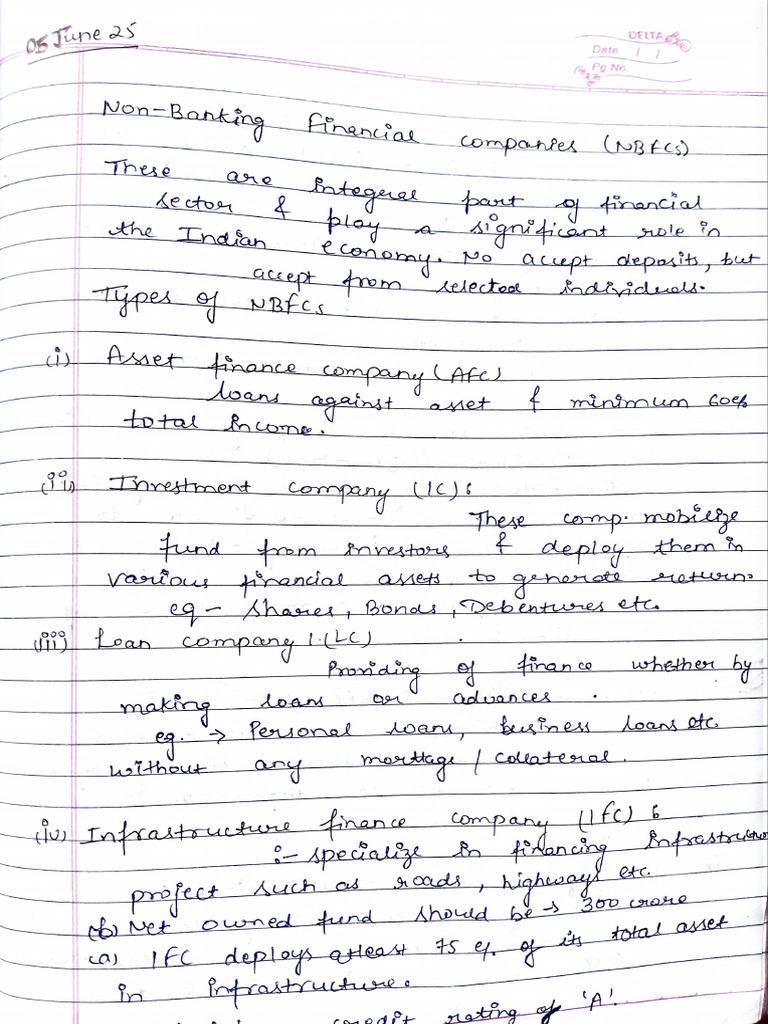 05 June 25
DELTA
Date / /
Pg No.
Non-Banking Financial companies (NBFCs)
These are integral part of financial
sector & play a significant role in
the Indian economy. No accept deposits, but
accept from selected individuals.
Types of NBFCs
(i) Asset finance company (AFC)
loans against asset & minimum 60%
total income.
(ii) Investment company (IC):
These comp. mobilize
fund from investors & deploy them in
various financial assets to generate return.
eg - Shares, Bonds, Debentures etc.
(iii) Loan company (LC)
Providing of finance whether by
making loans or advances.
eg. → Personal loans, business loans etc.
without any morttage / collateral.
(iv) Infrastructure finance company (IFC):
:- specialize in financing Infrastructure
project such as roads, highways etc.
(b) Net owned fund should be → 300 crore
(a) IFC deploys atleast 75 %. of its total asset
in infrastructure.
credit rating of 'A'.